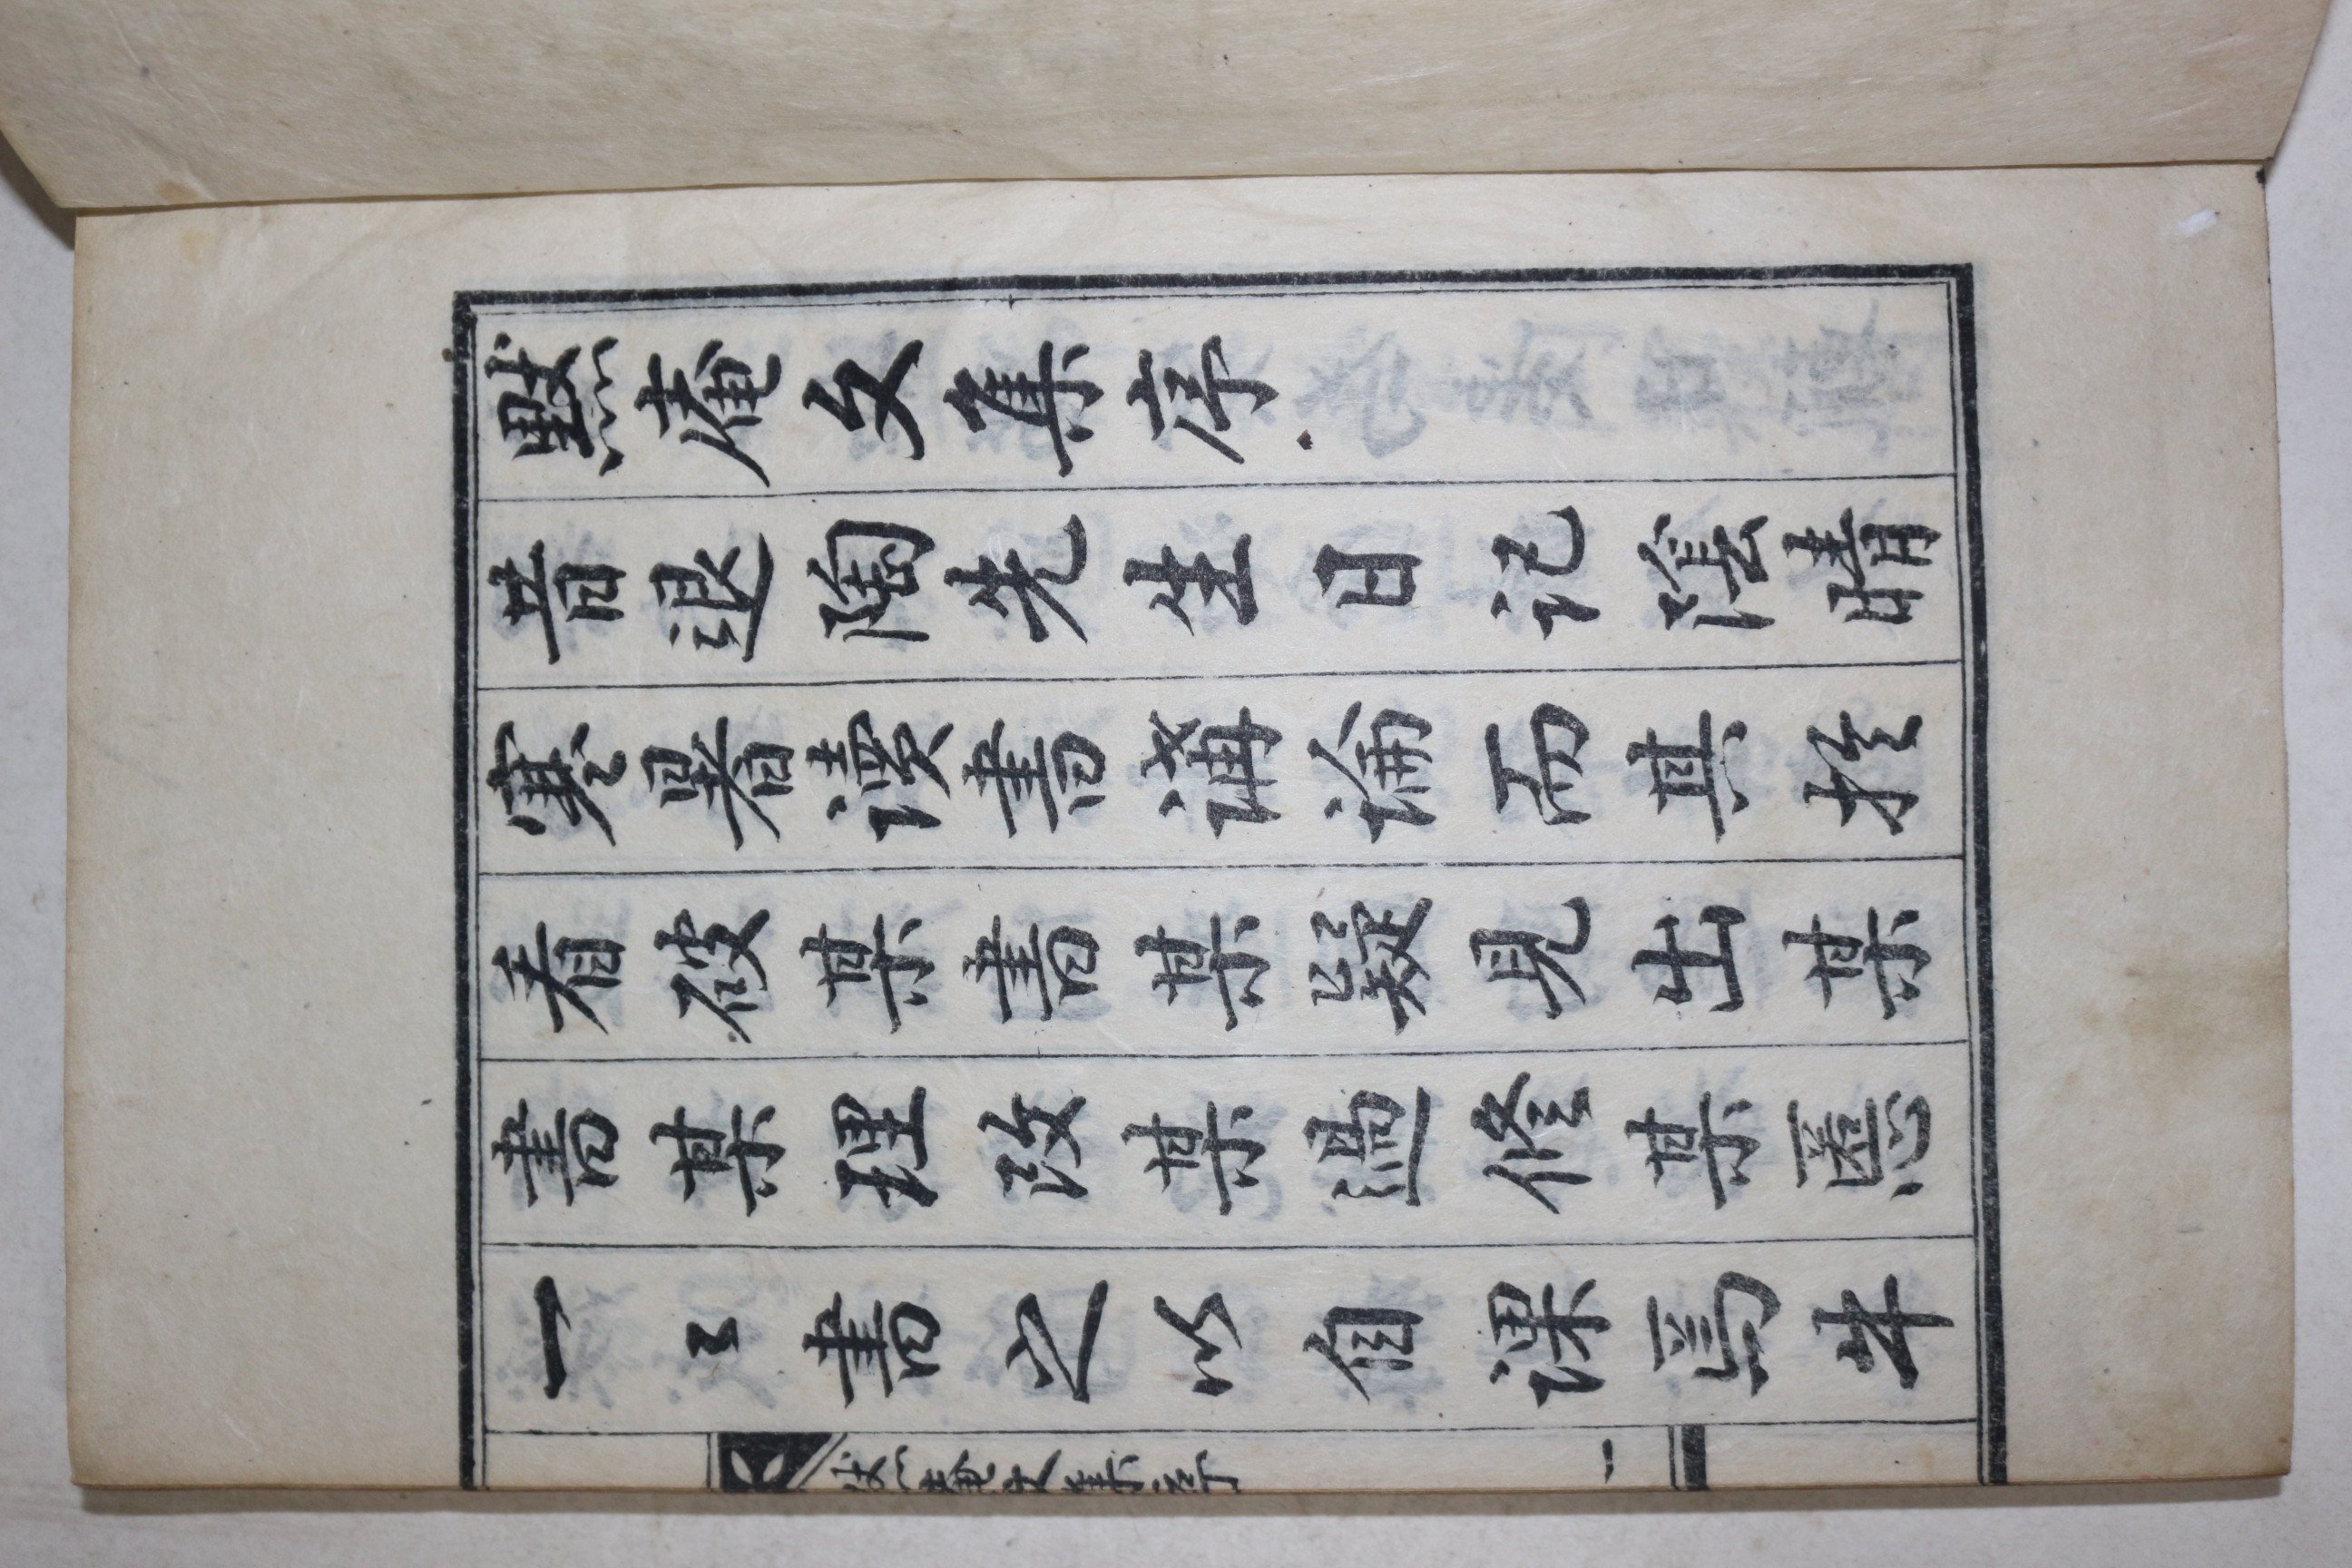 默庵文集序
昔退陶先生日記陰晴
寒暑讀書講論而其扵
看破某書某疑見出某
書某理改某過修某慝
一〻書之以自課焉牛
默庵文集序
一